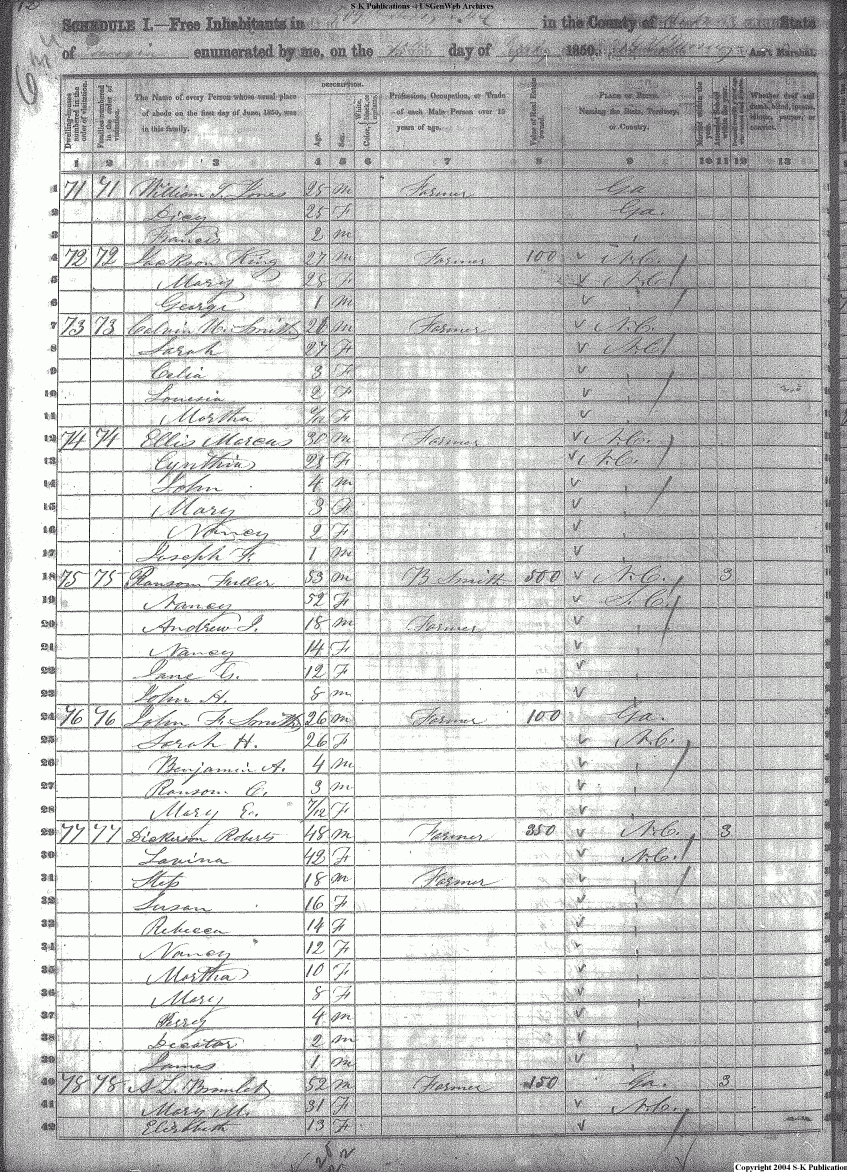 S-K Publications - USGenWeb Archives
SCHEDULE I.—Free Inhabitants in in the County of State
of enumerated by me, on the day of 1850. Ass't Marshal.
Dwelling-houses numbered in the order of visitation.
Families numbered in the order of visitation.
The Name of every Person whose usual place of abode on the first day of June, 1850, was in this family.
DESCRIPTION.
Age.
Sex.
White, Color, black, or mulatto.
Profession, Occupation, or Trade of each Male Person over 15 years of age.
Value of Real Estate owned.
PLACE OF BIRTH. Naming the State, Territory, or Country.
Married within the year.
Whether deaf and dumb, blind, insane, idiotic, pauper, or convict.
1 2 3 4 5 6 7 8 9 10 11 12 13
1 71 71 William T. Jones 25 m Farmer Ga
2 Dicy 25 F Ga.
3 Francis 2 m
4 72 72 Jackson King 27 m Farmer 100 v N.C.
5 Mary 28 F v N.C.
6 George 1 m v
7 73 73 Calvin H. Smith m Farmer v N.C.
8 Sarah 27 F v N.C.
9 Celia 3 F v
10 Louesia 2 F v
11 Martha F v
12 74 74 Ellis Marcus 30 m Farmer v N.C.
13 Cynthia F v N.C.
14 John 4 m v
15 Mary 3 F v
16 Nancy 2 F v
17 Joseph F. 1 m v
18 75 75 Ransom Fuller 53 m B Smith 500 v N.C. 3
19 Nancy 52 F v S.C.
20 Andrew J. 18 m Farmer v
21 Nancy 14 F v
22 Jane 12 F v
23 John H. 8 m v
24 76 76 John F. Smith 26 m Farmer 100 Ga.
25 Sarah H. 26 F v N.C.
26 Benjamin A. 4 m v
27 Ransom C. 3 m v
28 Mary E. 7/12 F v
29 77 77 Dickerson Roberts 48 m Farmer 350 v N.C. 3
30 Lavina 42 F v N.C.
31 18 m Farmer v
32 Susan 16 F v
33 Rebecca 14 F v
34 Nancy 12 F v
35 Martha 10 F v
36 Mary 8 F v
37 Perry 4 m v
38 2 m v
39 James 1 m v
40 78 78 A.L. 52 m Farmer 150 Ga. 3
41 Mary M. 31 F v N.C.
42 Elizabeth 13 F v
Copyright 2004 S-K Publications